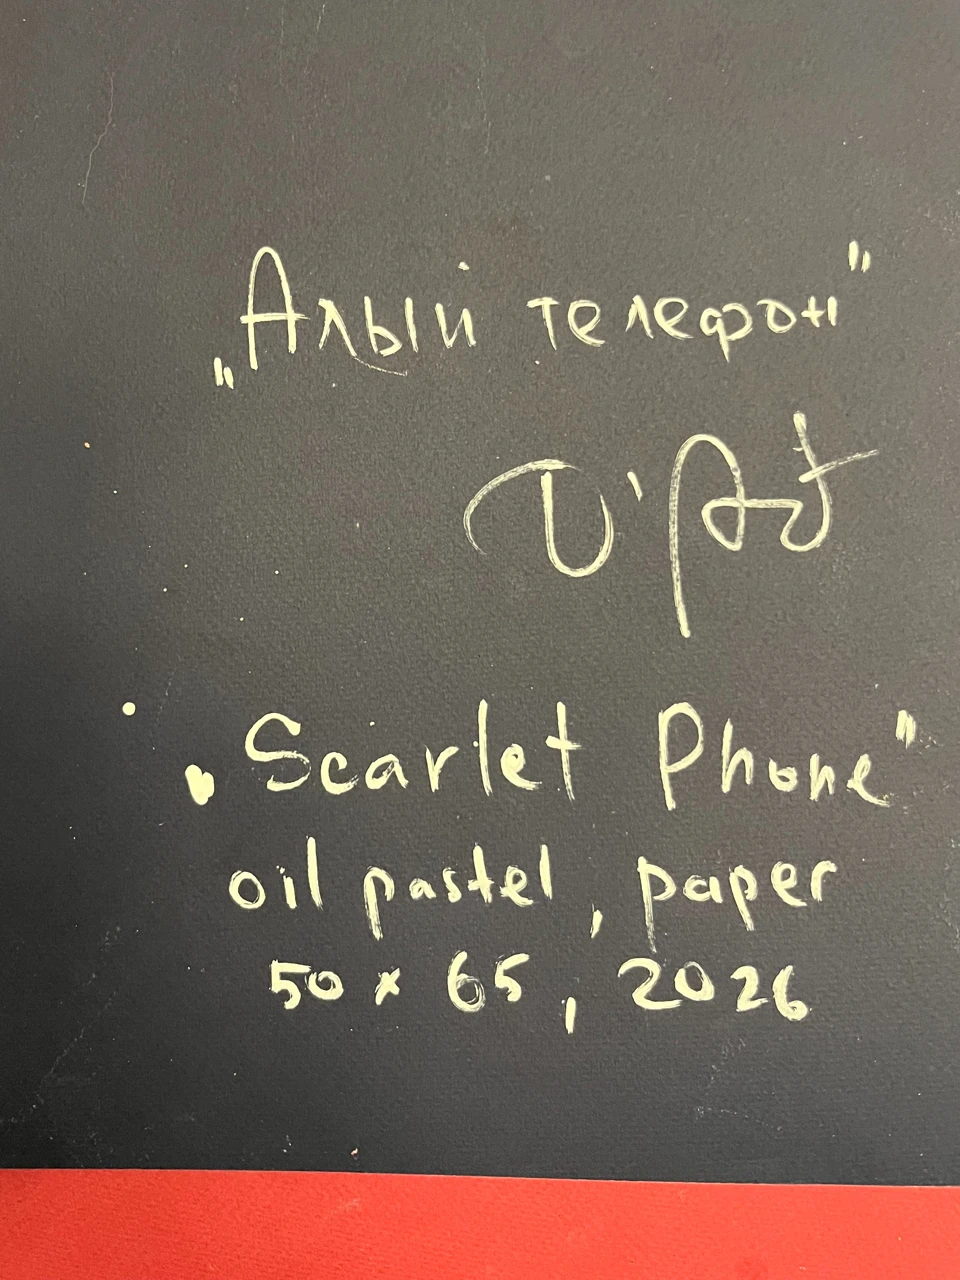 „Алый телефон"
„Scarlet Phone"
oil pastel, paper
50 x 65, 2026